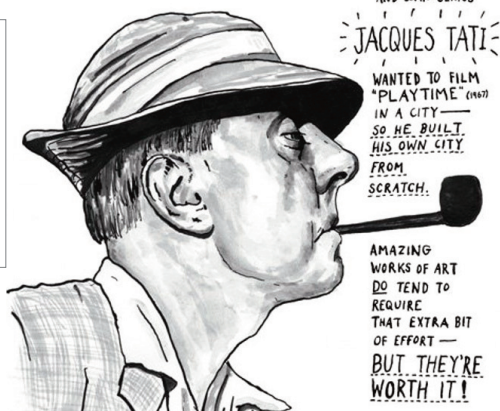 JACQUES TATI
WANTED TO FILM
"PLAYTIME" (1967)
IN A CITY—
SO HE BUILT
HIS OWN CITY
FROM
SCRATCH.
AMAZING
WORKS OF ART
DO TEND TO
REQUIRE
THAT EXTRA BIT
OF EFFORT—
BUT THEY'RE
WORTH IT!